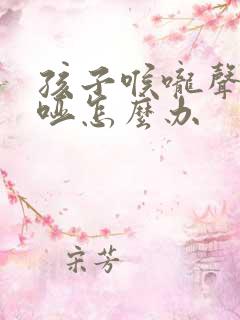 孩子喉嚨聲
啞怎麼办
宋芳